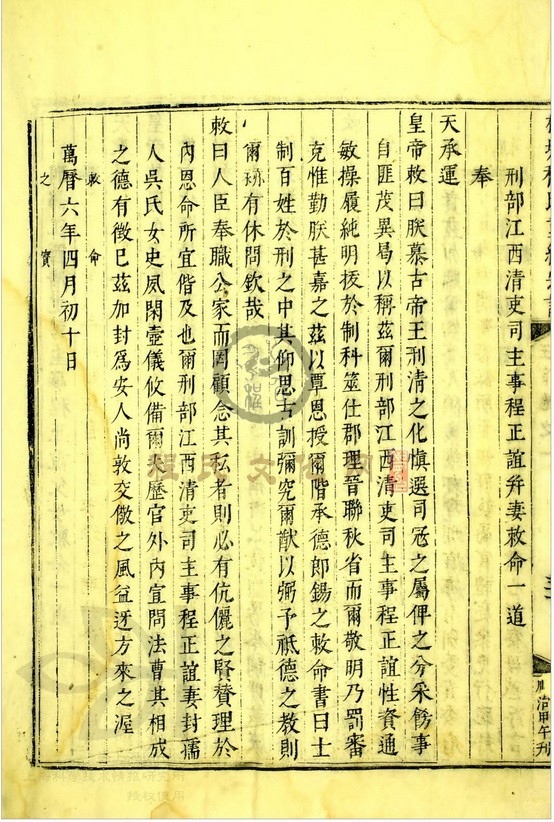 刑部江西清吏司主事程正誼并妻敕命一道
奉
天承運
皇帝敕曰朕慕古帝王刑清之化慎選司冦之屬俾之分采飭事
自匪茂異曷以稱茲爾刑部江西清吏司主事程正誼性資通
敏操履純明抜於制科筮仕郡理晉聯秋省而爾敬明乃罰審
克惟勤朕甚嘉之茲以覃恩授爾階承德郎錫之敕命書曰士
制百姓於刑之中其仰思古訓彌究爾猷以弼予祗德之教則
爾亦有休問欽哉
敕曰人臣奉職公家而罔顧念其私者則必有伉儷之賢賛理於
內恩命所宜偕及也爾刑部江西清吏司主事程正誼妻封孺
人吳氏女史夙閑壼儀攸備爾夫歷官外內宣問法曹其相成
之德有徵巳茲加封為安人尚敦交儆之風益迓方來之渥
敕命
萬曆六年四月初十日
之寶
治甲午刋
程氏文化网
授权使用